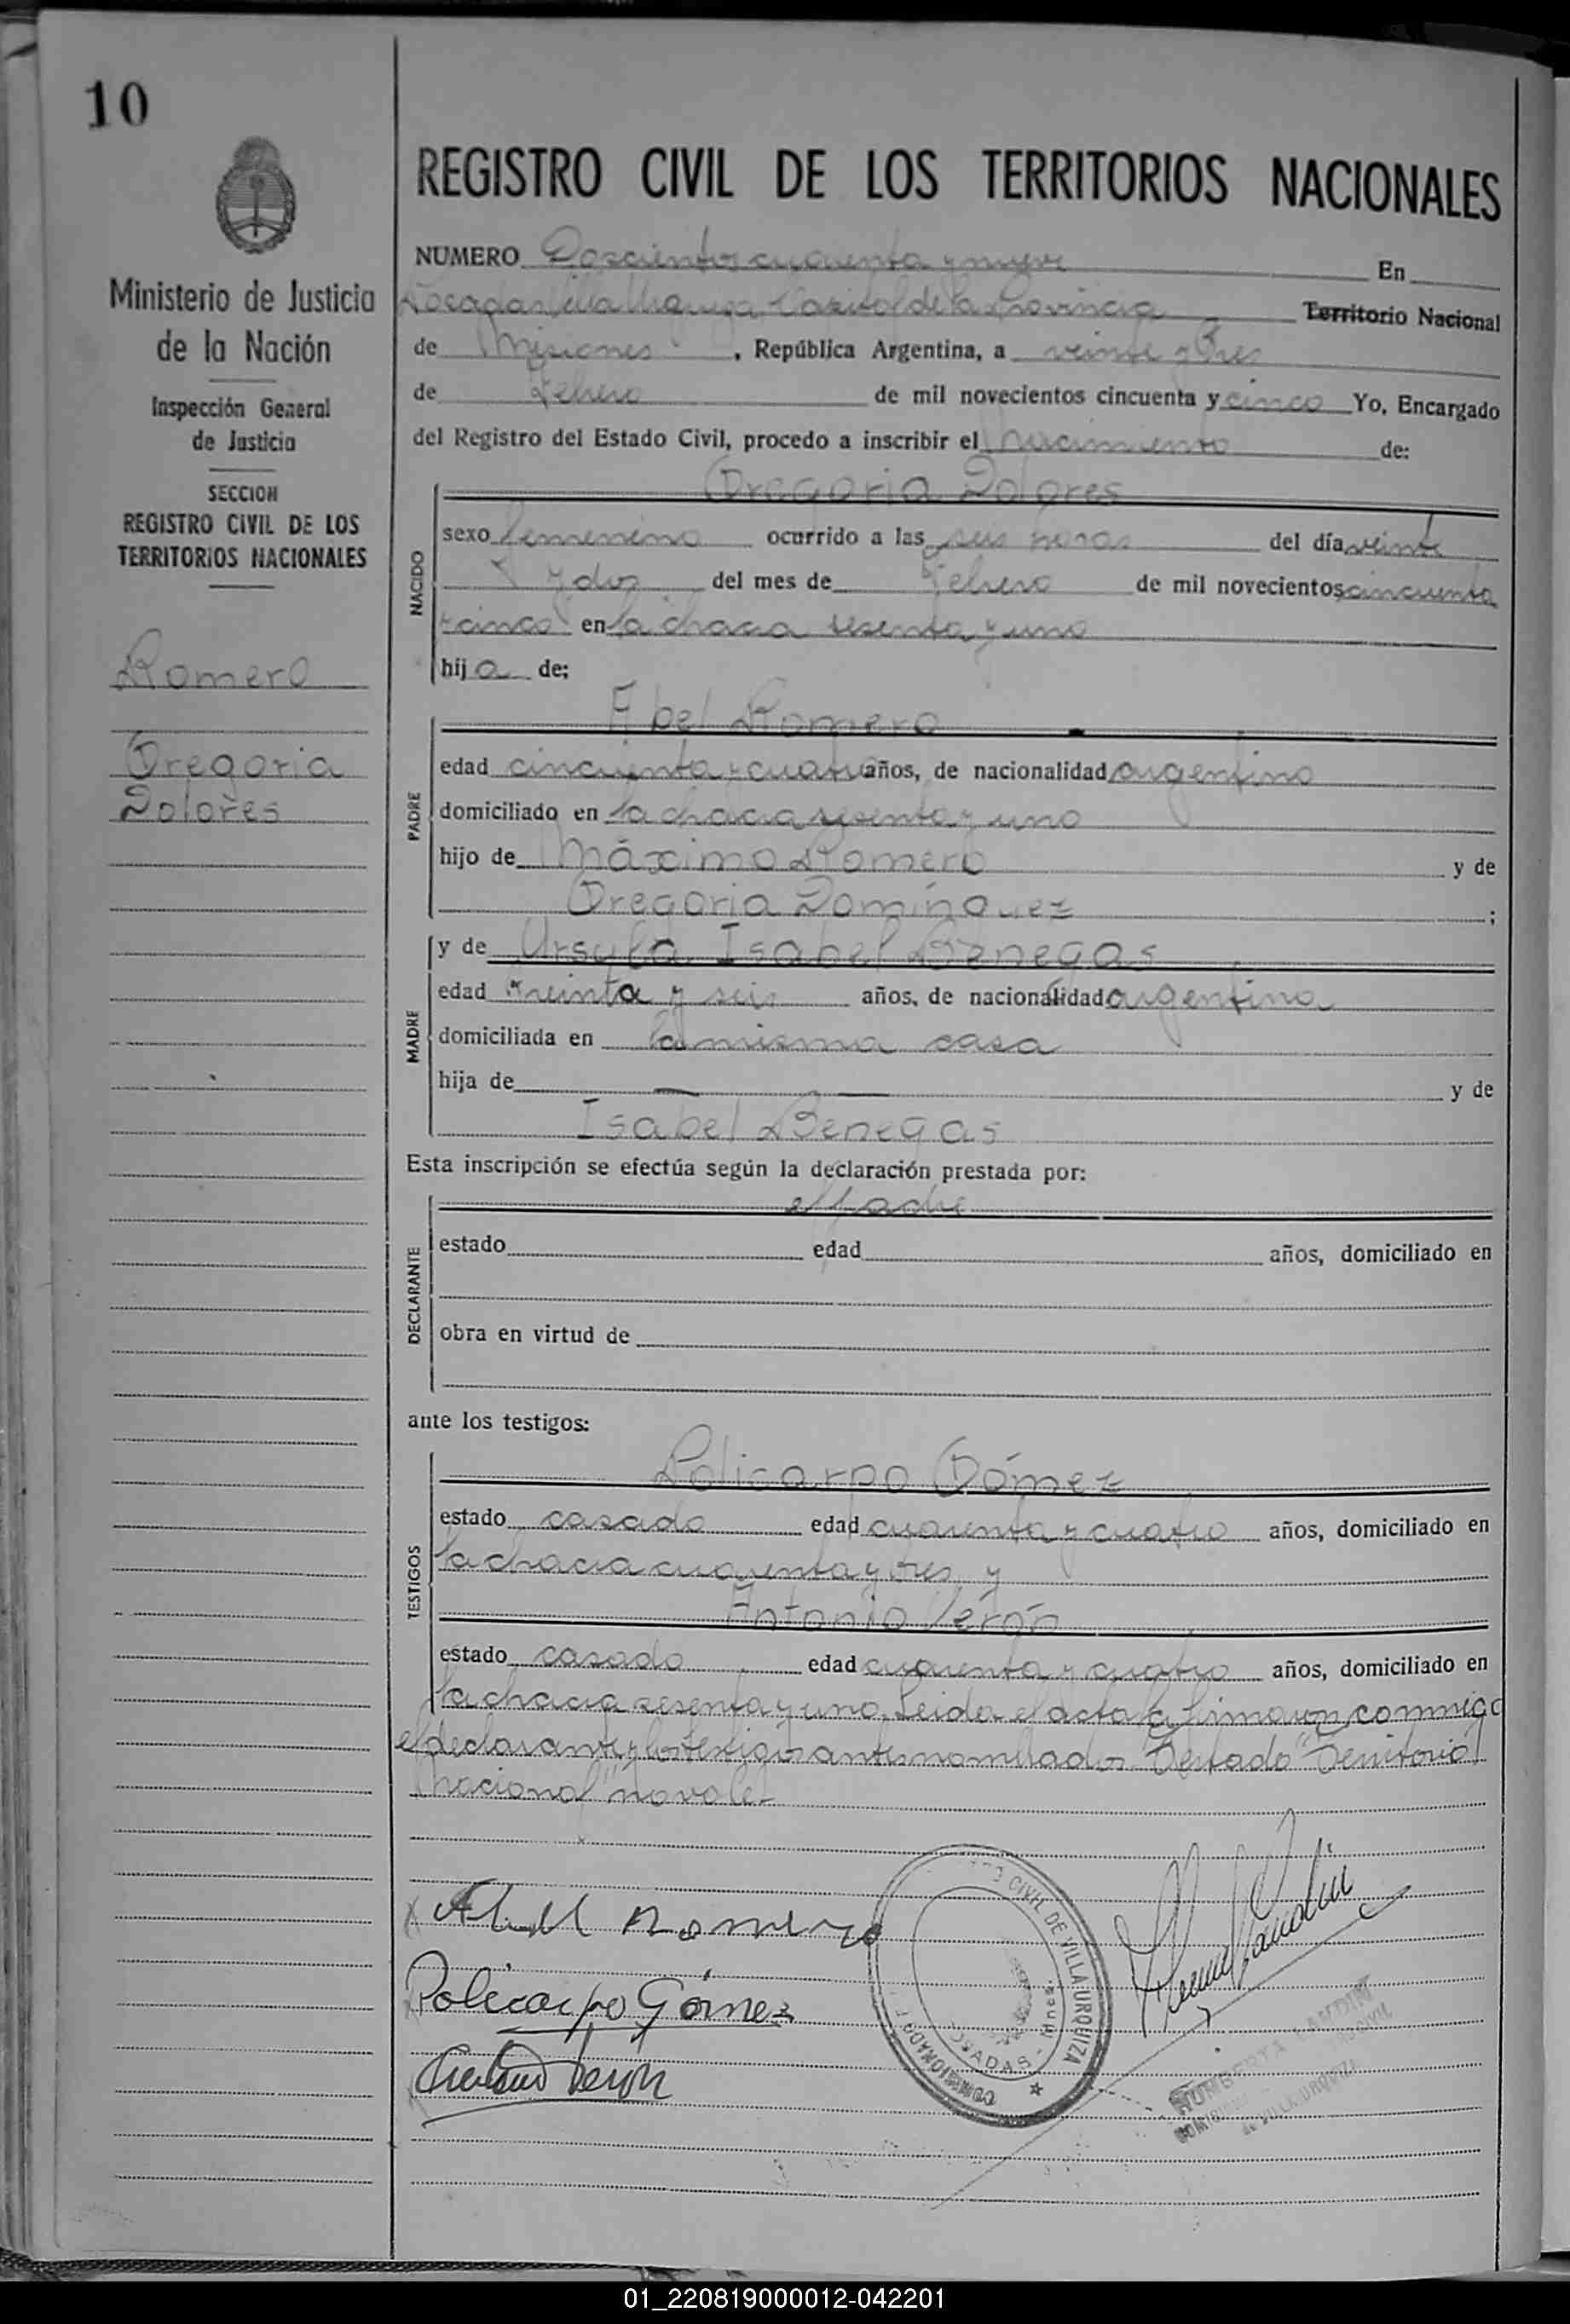 10
Ministerio de Justicia
de la Nación
Inspección General
de Justicia
SECCION
REGISTRO CIVIL DE LOS
TERRITORIOS NACIONALES
Romero
Gregoria
Dolores
REGISTRO CIVIL DE LOS TERRITORIOS NACIONALES
NUMERO Doscientos cuarenta y nueve En
Posadas Villa Urquiza Capital de la Provincia Territorio Nacional
de Misiones, República Argentina, a veinte y tres
de Febrero de mil novecientos cincuenta y cinco Yo, Encargado
del Registro del Estado Civil, procedo a inscribir el nacimiento de:
Gregoria Dolores
NACIDO
sexo femenino ocurrido a las seis horas del día veinte
y dos del mes de Febrero de mil novecientos cincuenta
y cinco en la chacra sesenta y uno
hija de:
PADRE
Abel Romero
edad cincuenta y cuatro años, de nacionalidad argentino
domiciliado en la chacra sesenta y uno
hijo de Máximo Romero y de
Gregoria Domínguez ;
MADRE
y de Ursula Isabel Benegas
edad treinta y seis años, de nacionalidad argentina
domiciliada en la misma casa
hija de — — y de
Isabel Benegas
Esta inscripción se efectúa según la declaración prestada por:
DECLARANTE
el padre
estado edad años, domiciliado en
obra en virtud de
ante los testigos:
TESTIGOS
Policarpo Gómez
estado casado edad cuarenta y cuatro años, domiciliado en
la chacra cuarenta y tres y
Antonio Verón
estado casado edad cuarenta y cuatro años, domiciliado en
la chacra sesenta y uno. Leida el acta la firmaron conmigo
el declarante y los testigos antes nombrados. Testado "Territorio
Nacional" no vale.-
Abel Romero
Policarpo Gómez
Verón
CIVIL DE VILLA URQUIZA
POSADAS - Mnes.
COMISIONADO
HUMBERTA LANDIN
VILLA URQUIZA
01_220819000012-042201